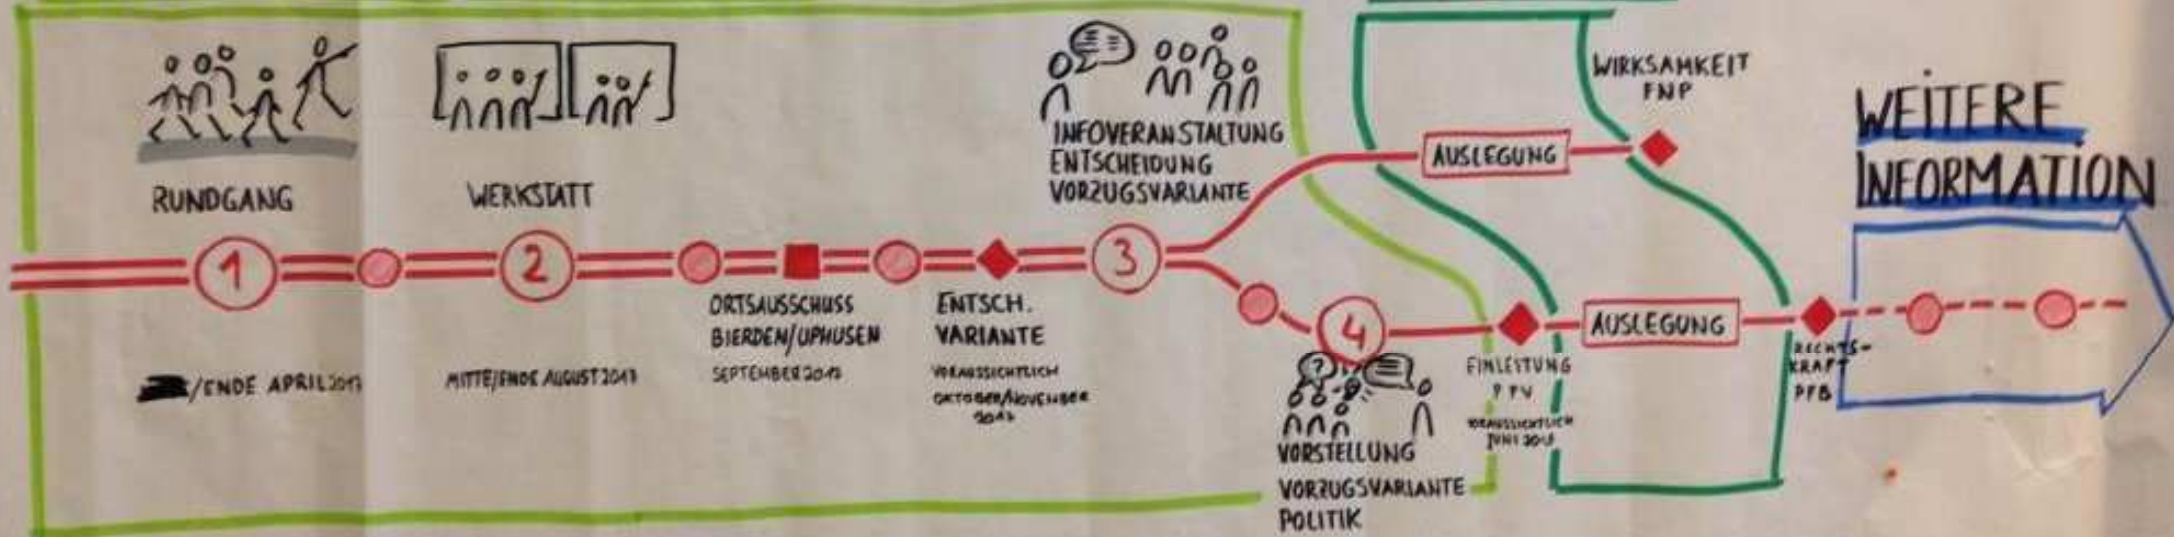 RUNDGANG
1
/ENDE APRIL 2017
WERKSTATT
2
MITTE/ENDE AUGUST 2017
ORTSAUSSCHUSS
BIERDEN/UPHUSEN
SEPTEMBER 2017
ENTSCH.
VARIANTE
VORAUSSICHTLICH
OKTOBER/NOVEMBER
2017
INFOVERANSTALTUNG
ENTSCHEIDUNG
VORZUGSVARIANTE
3
?
4
VORSTELLUNG
VORZUGSVARIANTE
POLITIK
AUSLEGUNG
WIRKSAMKEIT
FNP
EINLEITUNG
PFV
VORAUSSICHTLICH
JUNI
AUSLEGUNG
RECHTS-
KRAFT
PFB
WEITERE
INFORMATION